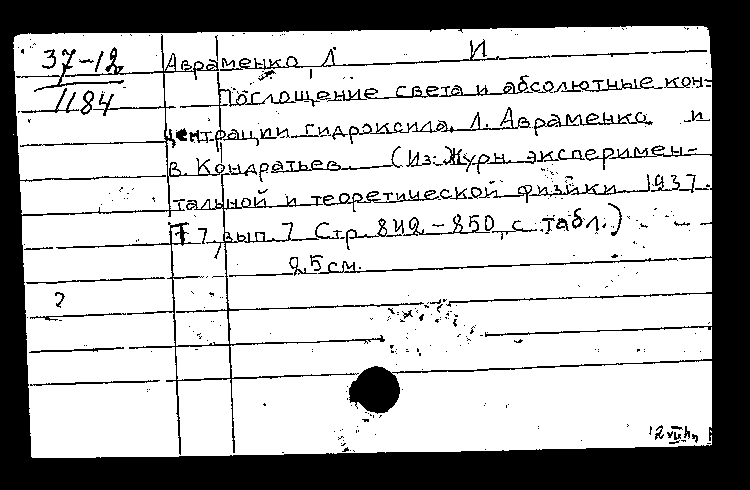 37-12
1184
Авраменко, Л И.
Поглощение света и абсолютные кон-
центрации гидроксила. Л. Авраменко и
В. Кондратьев. (Из: Журн. эксперимен-
тальной и теоретической физики. 1937.
Т 7, вып. 7 Стр. 842-850, с табл.)
25 см.
2